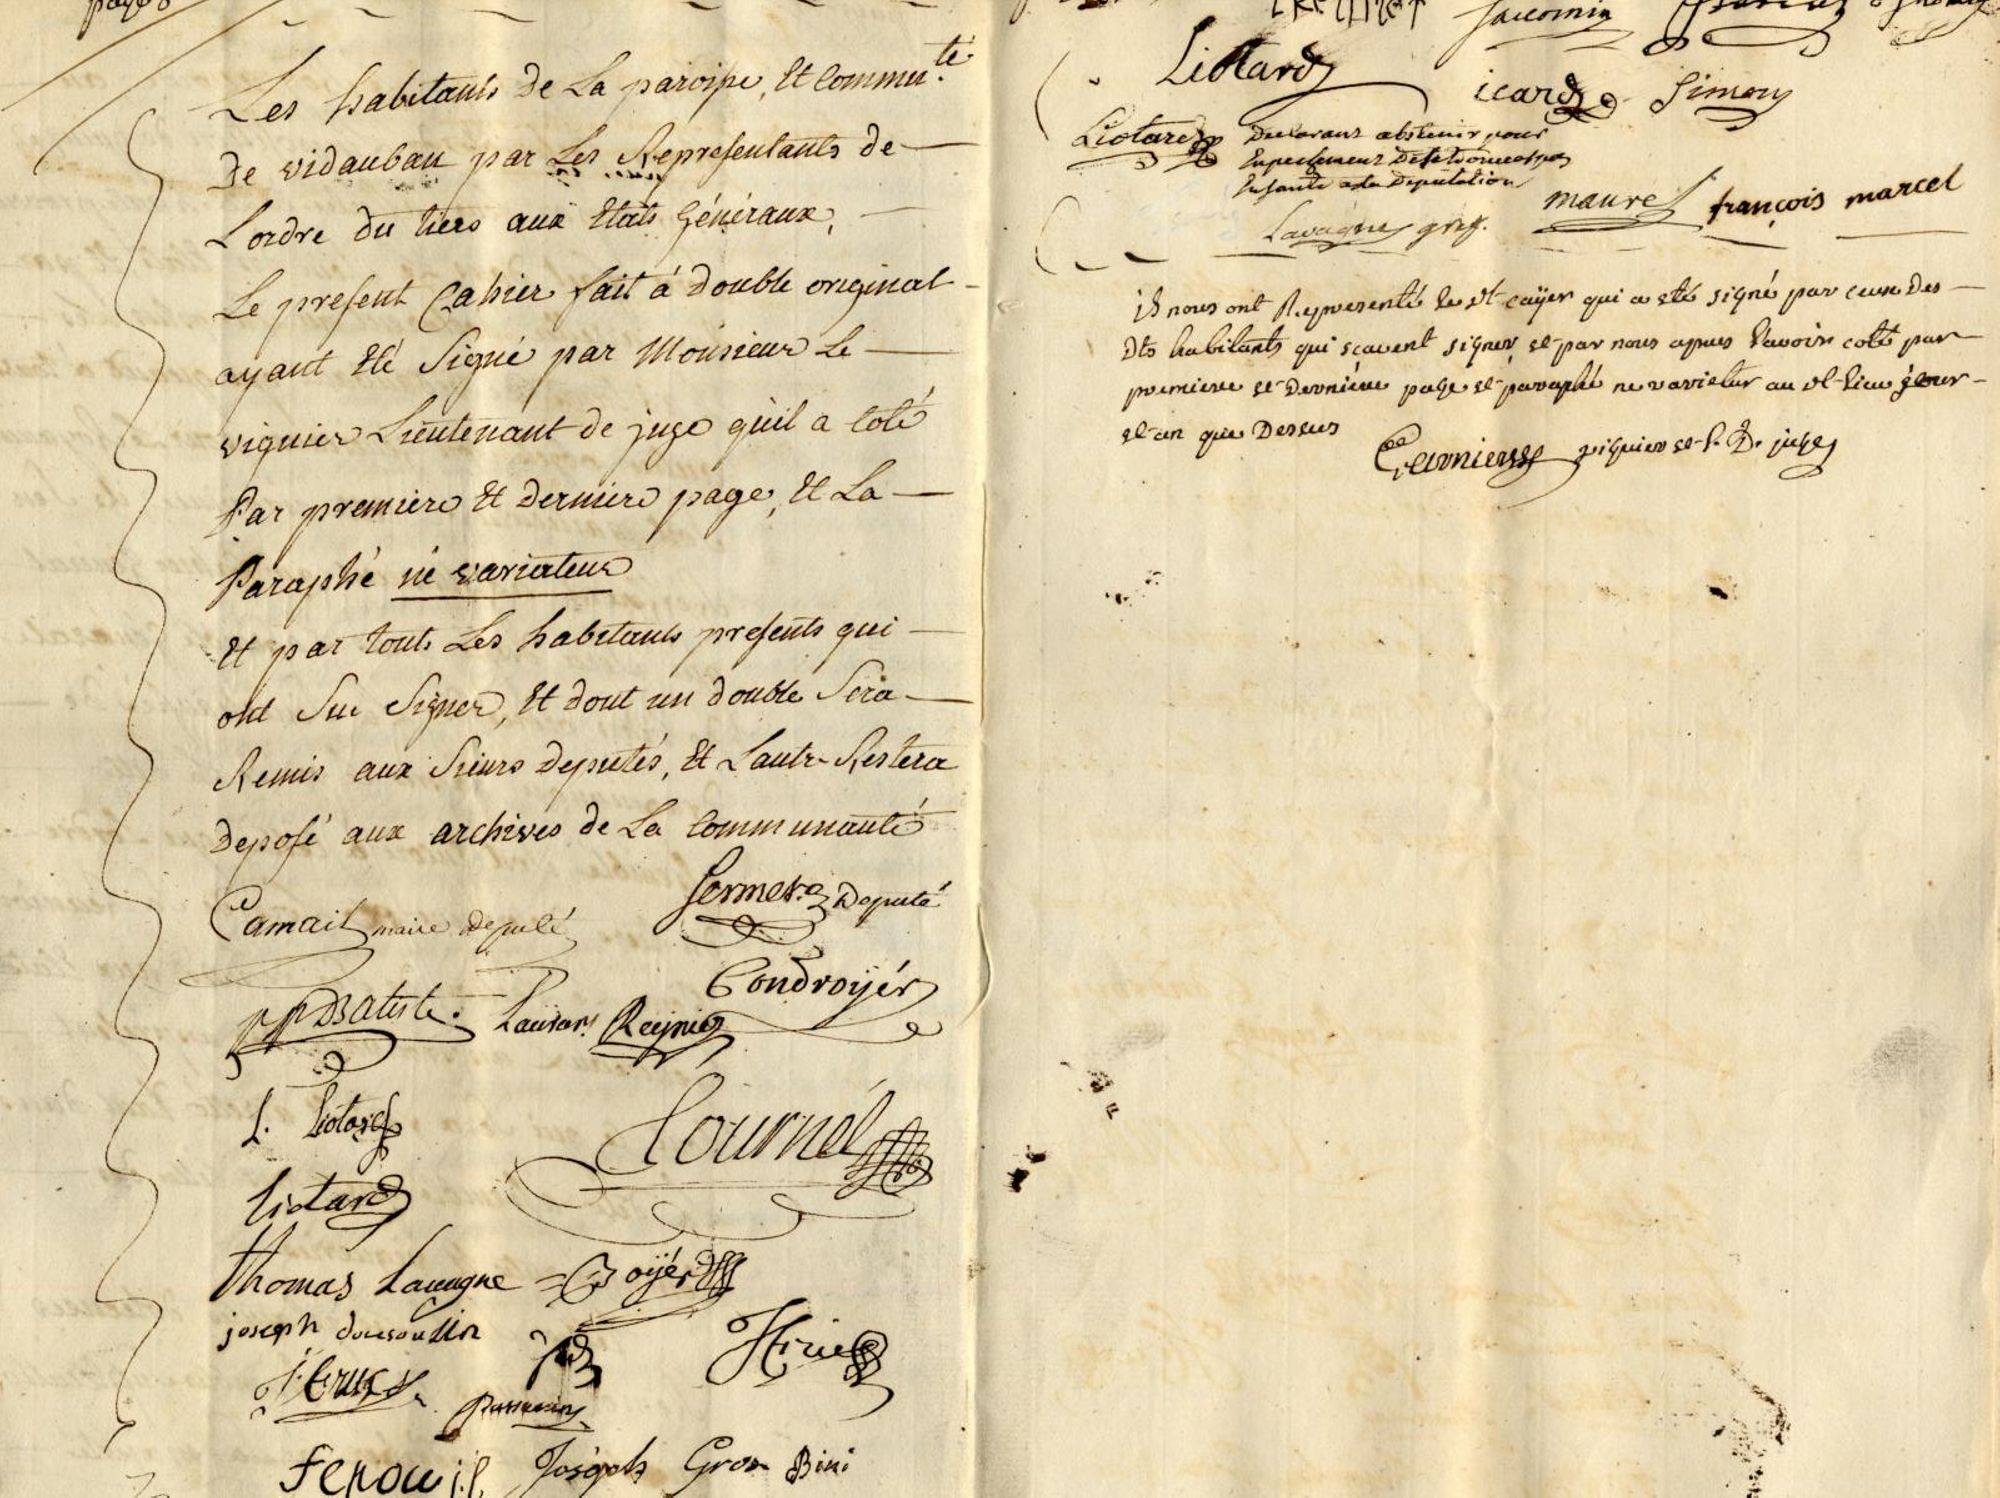 Les habitants de La paroisse, et Commu.té
De vidauban par Les Representants de
Lordre du tiers aux Etats Généraux,
Le present Cahier fait à double original
ayant été Signé par Monsieur Le
viguier Lieutenant de juge qu'il a coté
Par premiere et derniere page, et La
Paraphé né variateur
Et par touts Les habitants presents qui
ont Sue Signer, et dont un double Sera
Remis aux Sieurs Deputés, et Lautre Restera
Deposé aux archives de La Communauté
Camail maire député
Deputé
Condroyér
Batiste. Reynier
L. Liotard
Tournel
Liotard
thomas Lavagne Boyér
joseph
Joseph Gros
jaccomin
Liotard icard Simon
Liotard Declarans abstenir pour
Maurel françois marcel
Lavagne gref.
ils nous ont Representé le dt cayer qui a eté signé par ceux des
dts habitants qui scavent signer, et par nous apres lavoir coté par
premiere et derniére page et paraphé ne varietur au dt lieu jour
et an que Dessus
Garnier viguier et l. D. juge